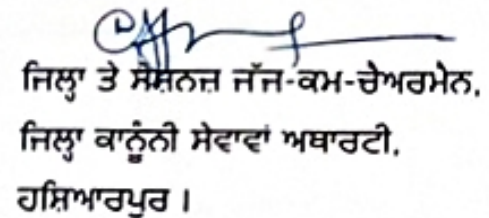 ਜਿਲ੍ਹਾ ਤੇ ਸੈਸ਼ਨਜ਼ ਜੱਜ-ਕਮ-ਚੇਅਰਮੇਨ,
ਜਿਲ੍ਹਾ ਕਾਨੂੰਨੀ ਸੇਵਾਵਾਂ ਅਥਾਰਟੀ,
ਹਸ਼ਿਆਰਪੁਰ ।